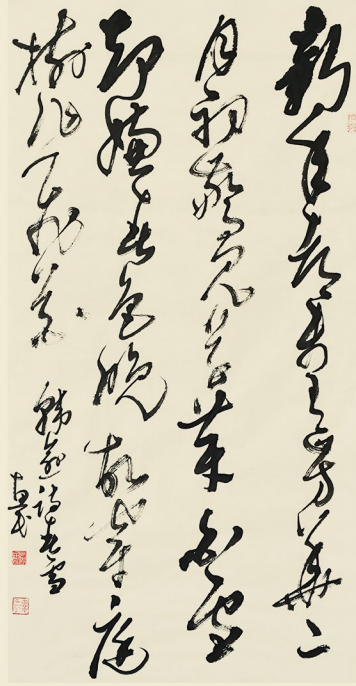 新年都未有芳華二
月初驚見草芽白雪
却嫌春色晚故穿庭
樹作飛花
韓愈詩春雪